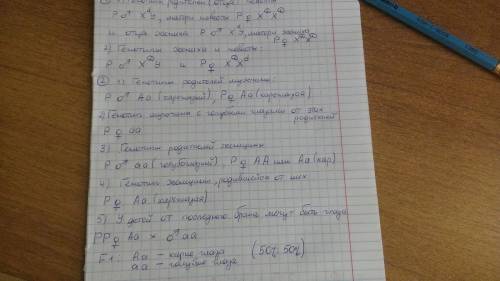 1) Генотипы родителей (отца) невесты
P ♂ XᵈY, матери невесты P ♀ Xᴰ Xᴰ
и отца жениха P ♂ XᵈY, матери жениха P ♀ Xᴰ Xᴰ
2) Генотипы жениха и невесты:
P ♂ XᴰY и P ♀ XᴰXᵈ
② 1) Генотипы родителей мужчины:
P ♂ Aa (кареглазый), P ♀ Aa (кареглазая)
2) Генотип мужчины с голубыми глазами от этих родителей
P ♀ aa
3) Генотипы родителей женщины
P ♂ aa (голубоглазый), P ♀ AA или Aa (кар)
4) Генотип женщины, родившейся от них
P ♀ Aa (кареглазая)
5) У детей от последнего брака могут быть глаза
PP ♀ Aa × ♂ aa
F1. Aa – карие глаза (50%:50%)
aa – голубые глаза